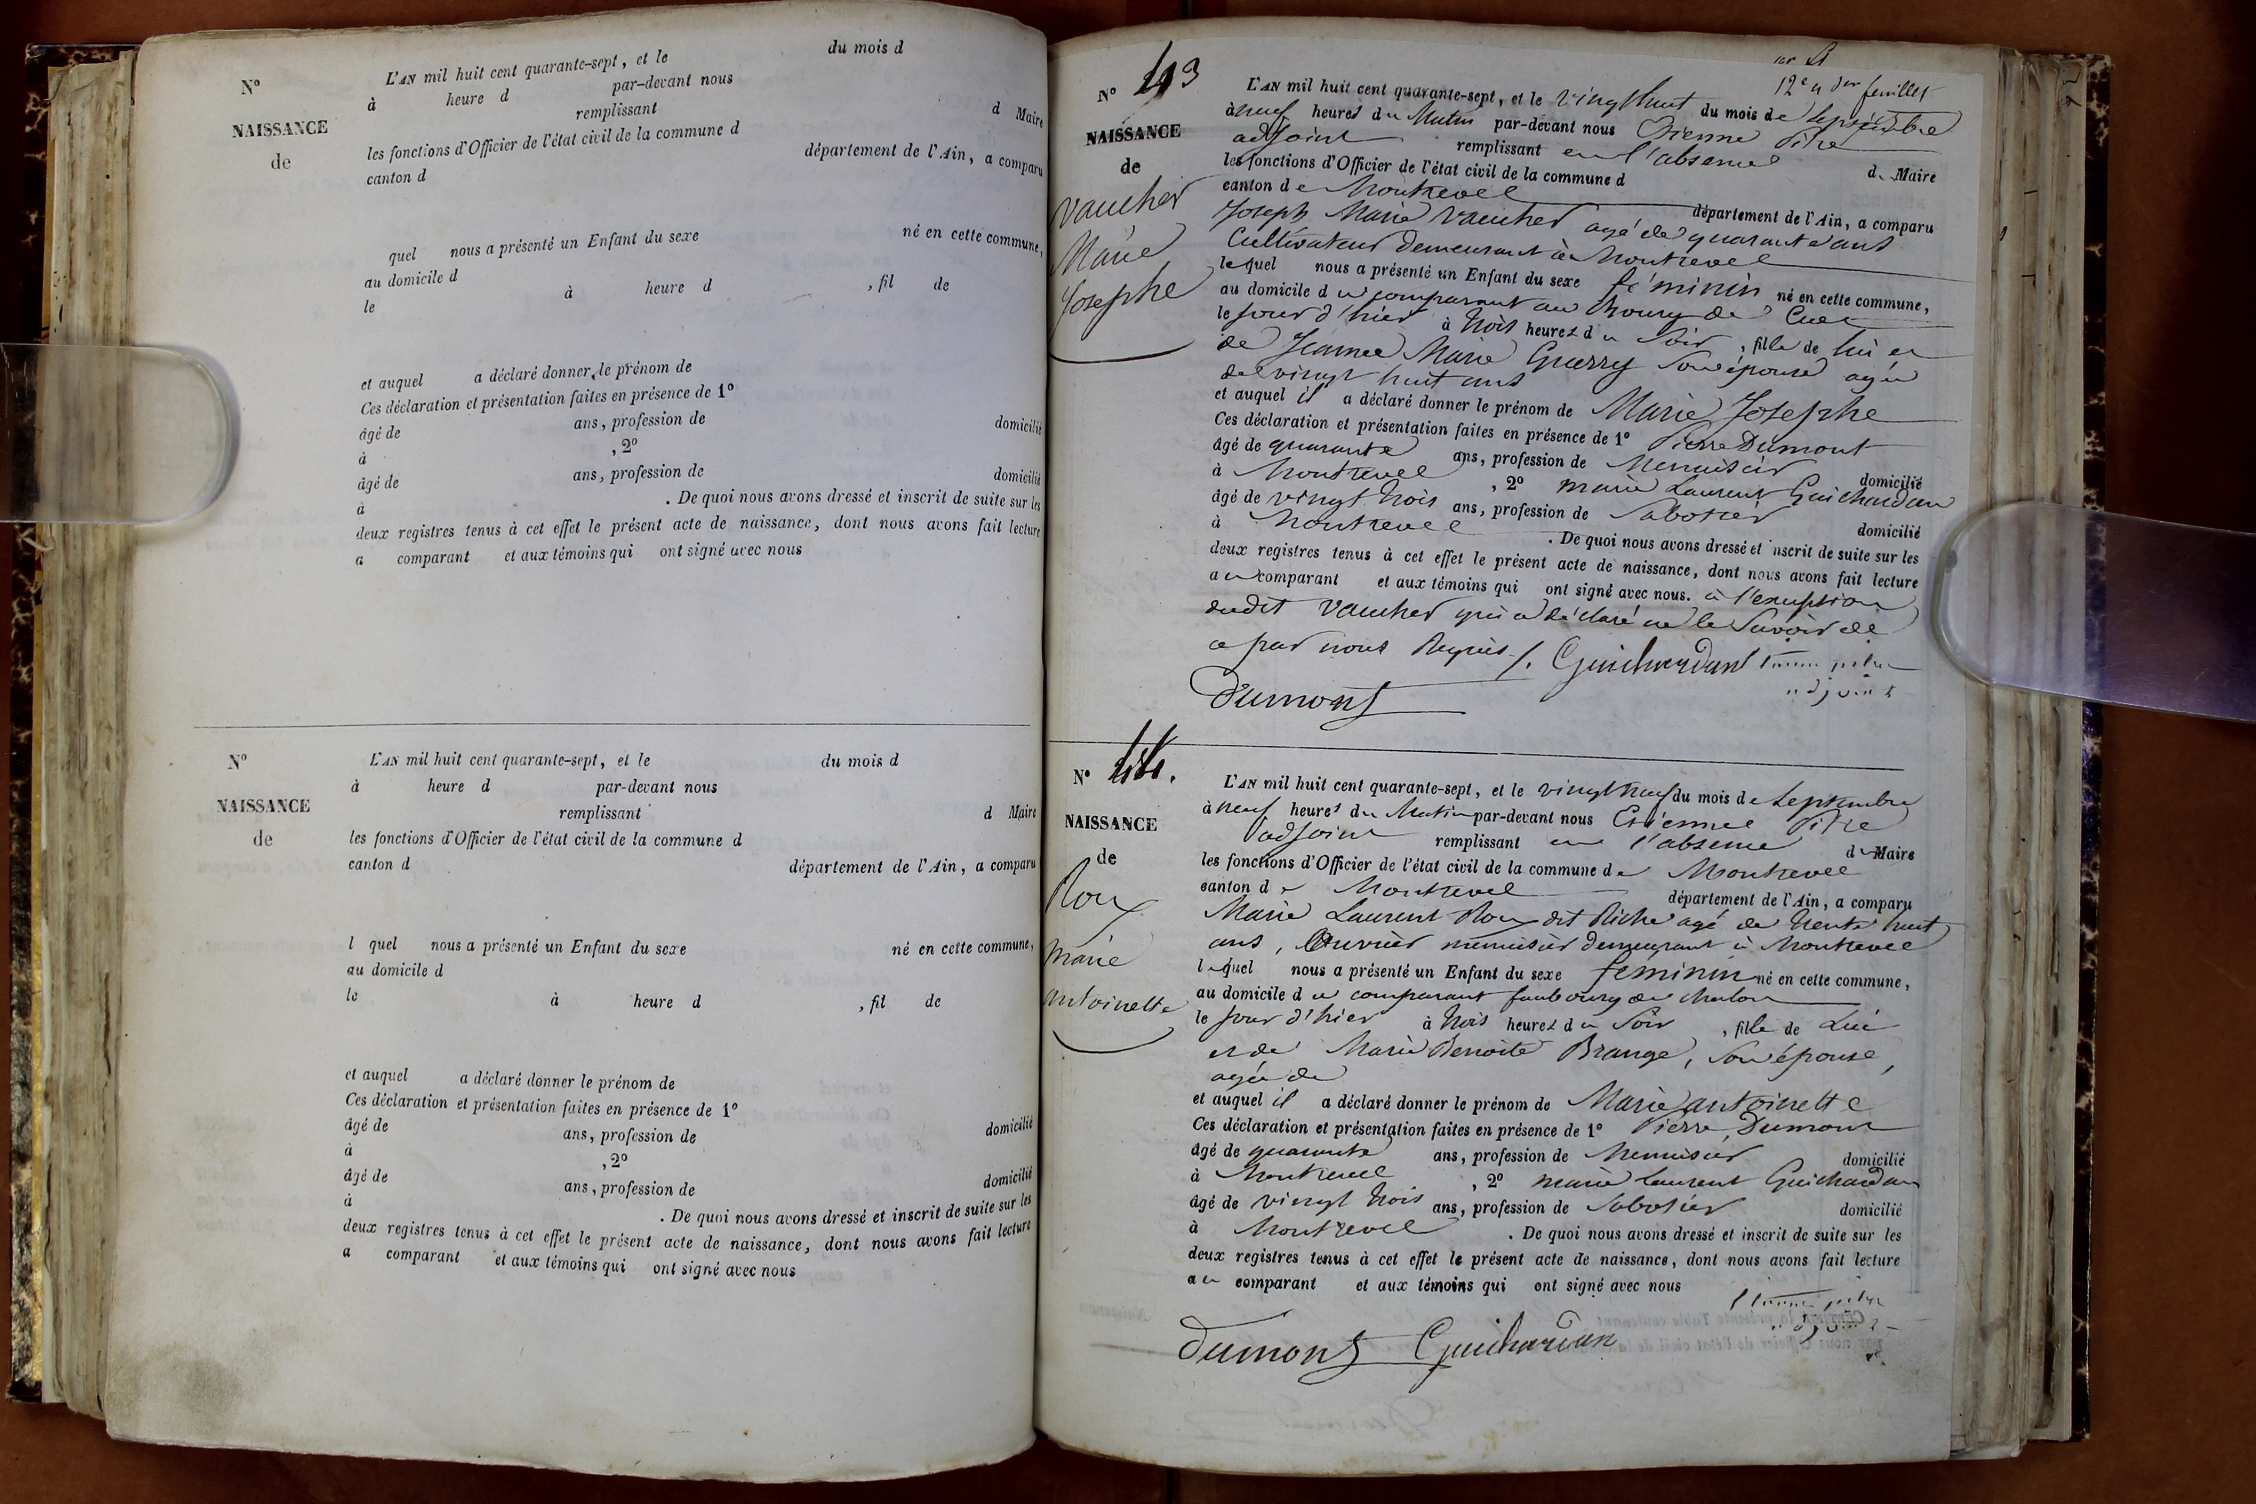 N°
NAISSANCE
de
L'AN mil huit cent quarante-sept, et le du mois d
à heure d par-devant nous
remplissant d Maire
les fonctions d'Officier de l'état civil de la commune d
canton d département de l'Ain, a comparu
quel nous a présenté un Enfant du sexe né en cette commune,
au domicile d
le à heure d , fil de
et auquel a déclaré donner le prénom de
Ces déclaration et présentation faites en présence de 1°
âgé de ans, profession de domicilié
à , 2°
âgé de ans, profession de domicilié
à . De quoi nous avons dressé et inscrit de suite sur les
deux registres tenus à cet effet le présent acte de naissance, dont nous avons fait lecture
a comparant et aux témoins qui ont signé avec nous
N°
NAISSANCE
de
L'AN mil huit cent quarante-sept, et le du mois d
à heure d par-devant nous
remplissant d Maire
les fonctions d'Officier de l'état civil de la commune d
canton d département de l'Ain, a comparu
l quel nous a présenté un Enfant du sexe né en cette commune,
au domicile d
le à heure d , fil de
et auquel a déclaré donner le prénom de
Ces déclaration et présentation faites en présence de 1°
âgé de ans, profession de domicilié
à , 2°
âgé de ans, profession de domicilié
à . De quoi nous avons dressé et inscrit de suite sur les
deux registres tenus à cet effet le présent acte de naissance, dont nous avons fait lecture
a comparant et aux témoins qui ont signé avec nous
12e et der feuillet
N° 43
NAISSANCE
de
Vaucher
Marie
Josephe
L'AN mil huit cent quarante-sept, et le vingt huit du mois de Septembre
à neuf heures du Matin par-devant nous Etienne Pitre
adjoint remplissant en l'absence du Maire
les fonctions d'Officier de l'état civil de la commune d
canton de Montrevel département de l'Ain, a comparu
Joseph Marie Vaucher agé de quarante ans
Cultivateur demeurant à Montrevel
lequel nous a présenté un Enfant du sexe féminin né en cette commune,
au domicile du comparant au Bourg de Cuet
le jour d'hier à trois heures du Soir , fille de lui et
de Jeanne Marie Guerry Son épouse agée
de vingt huit ans
et auquel il a déclaré donner le prénom de Marie Josephe
Ces déclaration et présentation faites en présence de 1° Pierre Dumont
âgé de quarante ans, profession de Menuisier domicilié
à Montrevel , 2° marie Laurent Guichardan
âgé de vingt trois ans, profession de Sabotier domicilié
à Montrevel . De quoi nous avons dressé et inscrit de suite sur les
deux registres tenus à cet effet le présent acte de naissance, dont nous avons fait lecture
au comparant et aux témoins qui ont signé avec nous. à l'exception
dudit Vaucher qui a déclaré ne le Savoir de
ce par nous Requis /. Guichardan
adjoint
Dumont
N° 44.
NAISSANCE
de
Roux
Marie
antoinette
L'AN mil huit cent quarante-sept, et le vingt neuf du mois de Septembre
à neuf heures du Matin par-devant nous Etienne Pitre
adjoint remplissant en l'absence du Maire
les fonctions d'Officier de l'état civil de la commune de Montrevel
canton de Montrevel département de l'Ain, a comparu
Marie Laurent Roux dit Riche agé de trente huit
ans, Ouvrier menuisier demeurant à Montrevel
lequel nous a présenté un Enfant du sexe féminin né en cette commune,
au domicile du comparant faubourg de chalon
le jour d'hier à trois heures du Soir , fille de Lui
et de Marie Benoite Brange, Son épouse,
agée de
et auquel il a déclaré donner le prénom de Marie antoinette
Ces déclaration et présentation faites en présence de 1° Pierre Dumont
âgé de quarante ans, profession de Menuisier domicilié
à Montrevel , 2° marie laurent Guichardan
âgé de vingt trois ans, profession de Sabotier domicilié
à Montrevel . De quoi nous avons dressé et inscrit de suite sur les
deux registres tenus à cet effet le présent acte de naissance, dont nous avons fait lecture
au comparant et aux témoins qui ont signé avec nous
adjoint
Dumont Guichardan